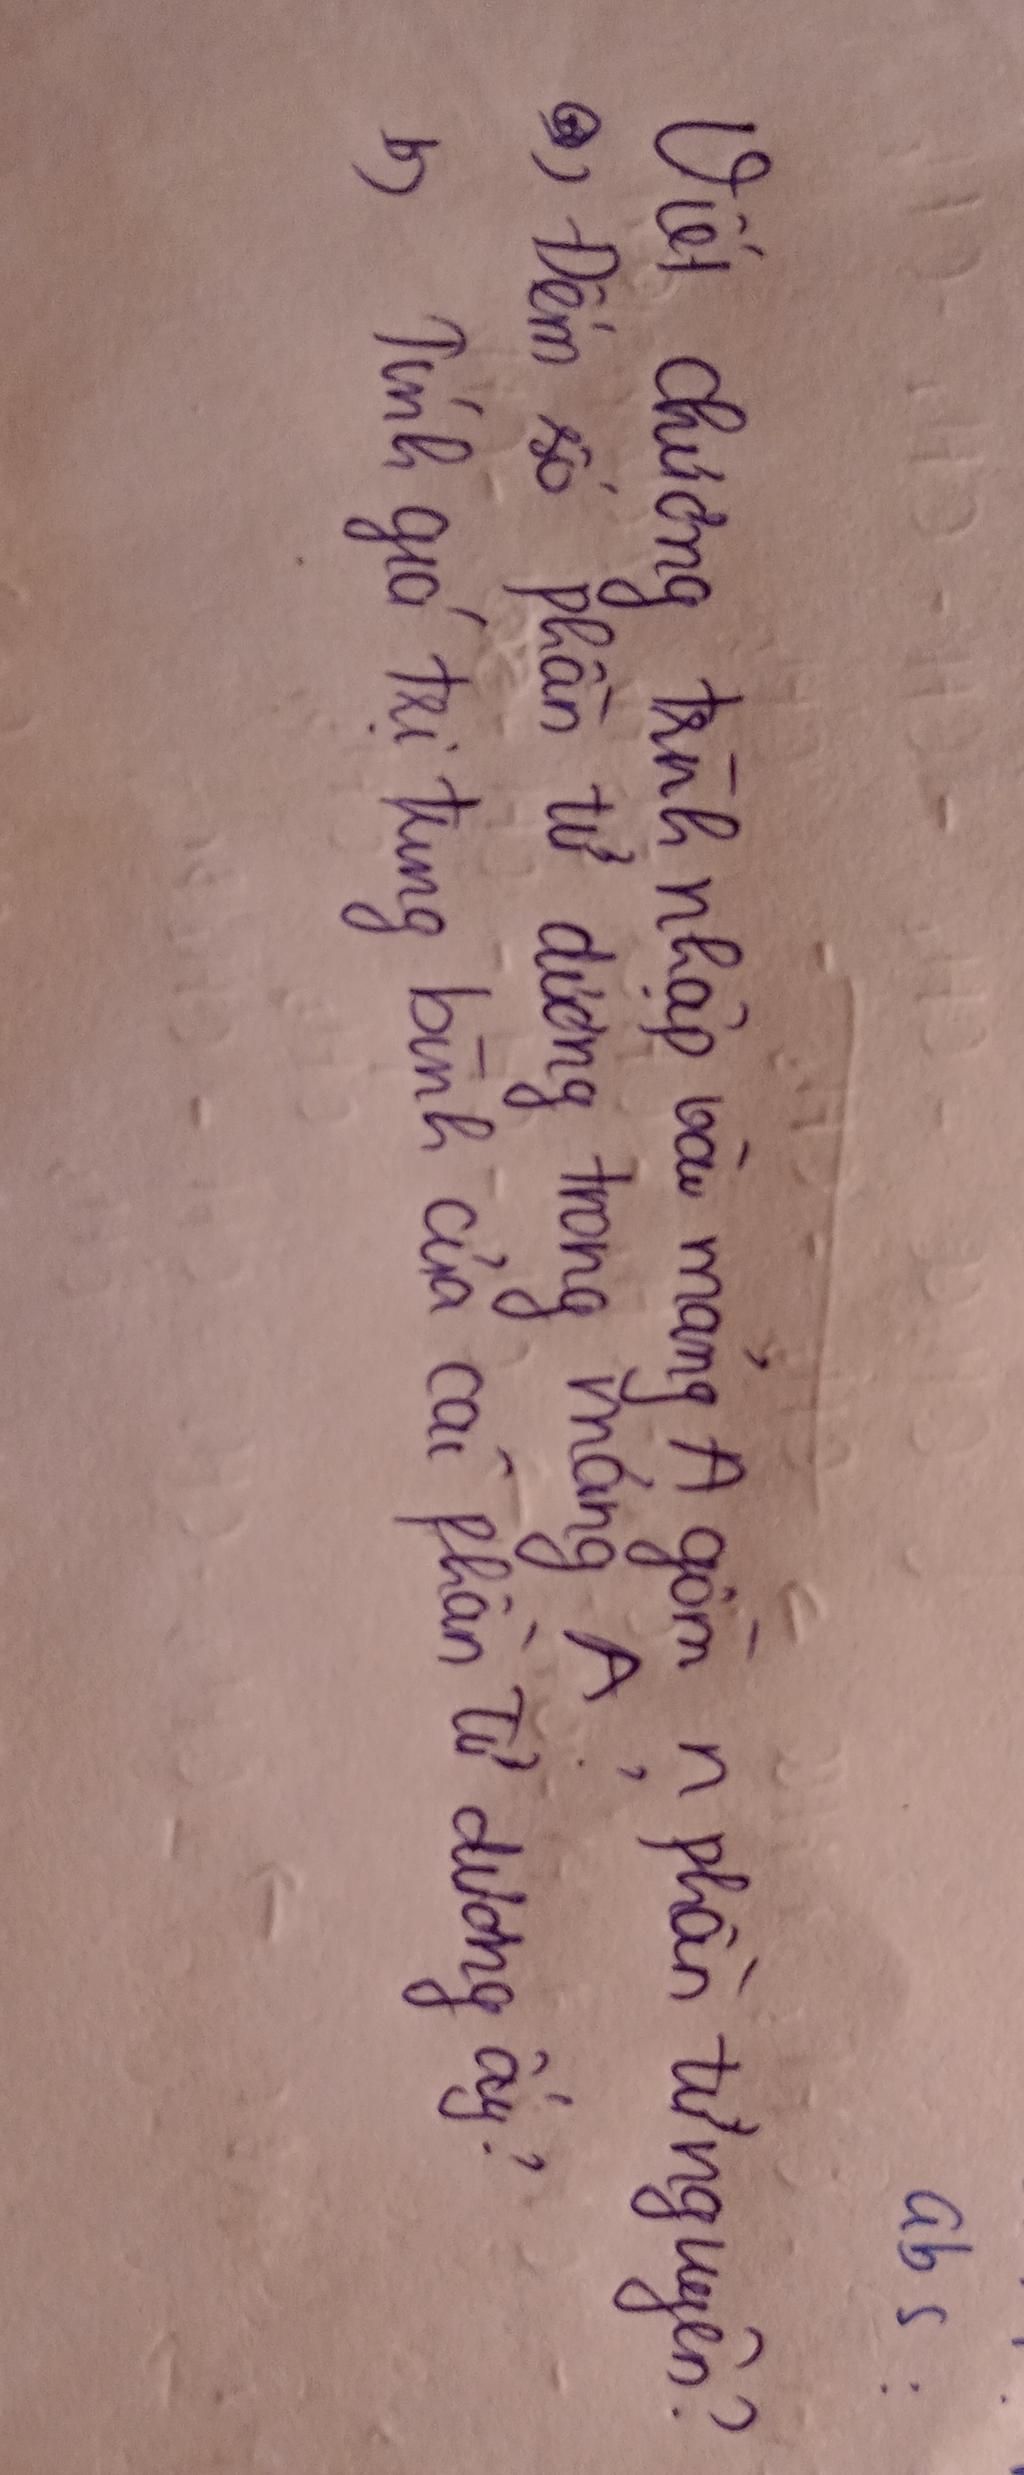 abs :
Viết chương trình nhập vào mảng A gồm n phần tử nguyên?
a, Đếm số phần tử dương trong mảng A?
b, Tính giá trị trung bình của các phần tử dương ấy?